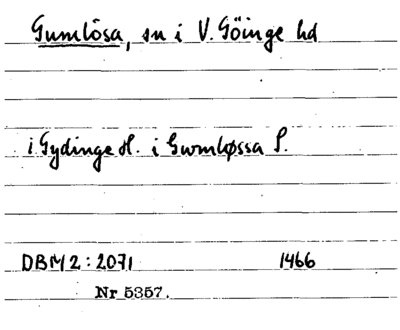 Gumlösa, sn i V. Göinge hd
i Gydinge H. i Gwmløssa S.
DBM 2:2071 1466
Nr 5357.